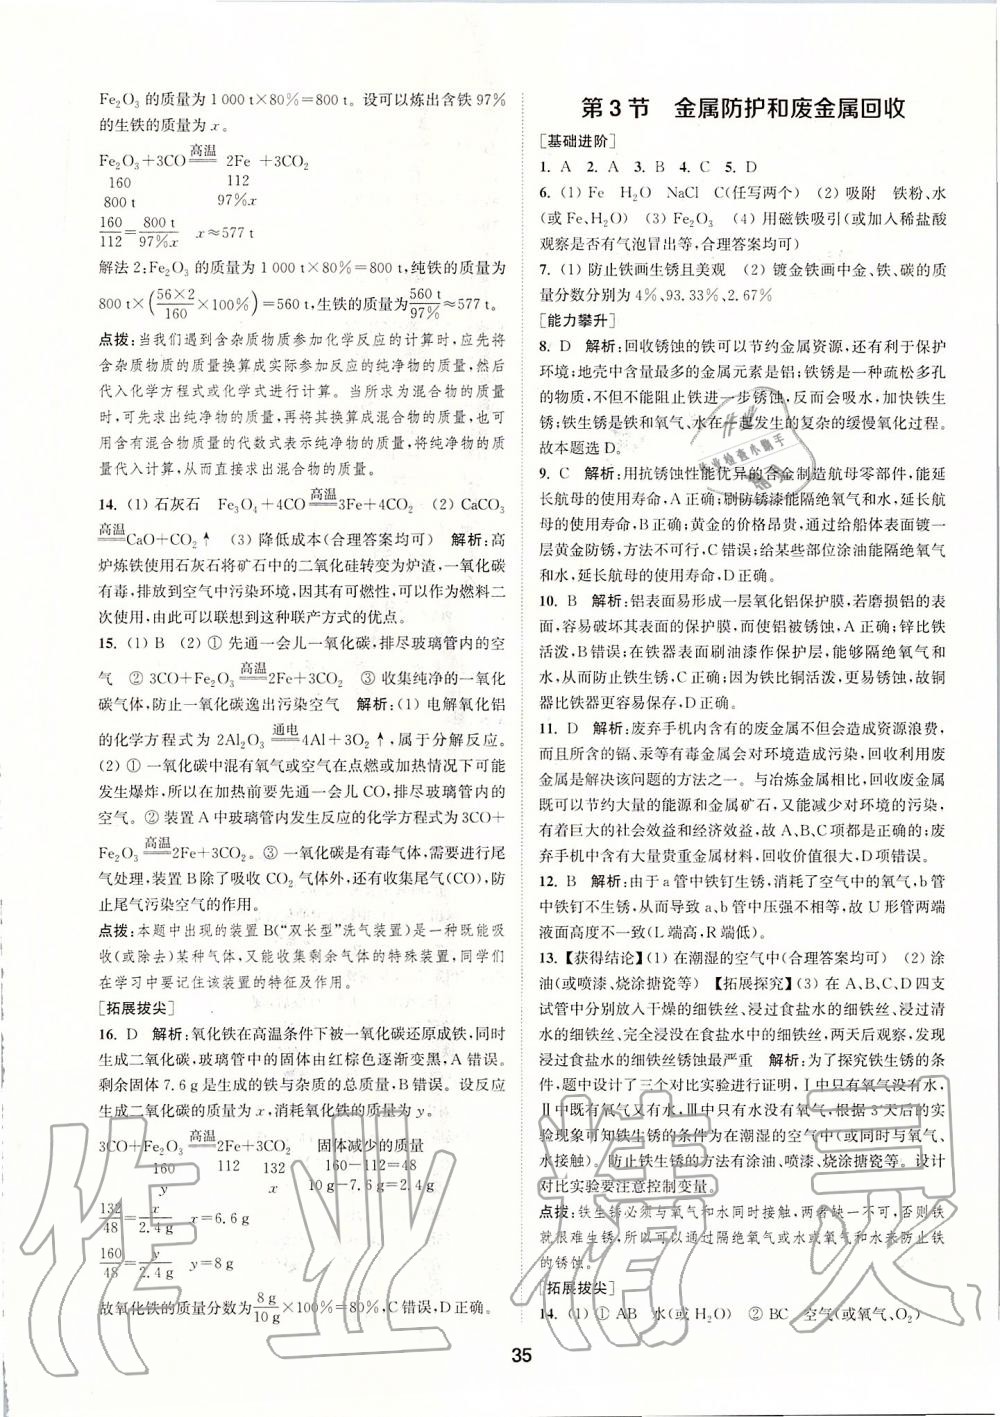 Fe₂O₃ 的质量为 1 000 t×80%=800 t。设可以炼出含铁 97%
的生铁的质量为 x。
Fe₂O₃+3CO 高温══ 2Fe +3CO₂
160 112
800 t 97%x
160/112=800 t/97%x x≈577 t
解法 2:Fe₂O₃ 的质量为 1 000 t×80%=800 t,纯铁的质量为
800 t×(56×2/160×100%)=560 t,生铁的质量为560 t/97%≈577 t。
点拨:当我们遇到含杂质物质参加化学反应的计算时,应先将
含杂质物质的质量换算成实际参加反应的纯净物的质量,然后
代入化学方程式或化学式进行计算。当所求为混合物的质量
时,可先求出纯净物的质量,再将其换算成混合物的质量,也可
用含有混合物质量的代数式表示纯净物的质量,将纯净物的质
量代入计算,从而直接求出混合物的质量。
14. (1) 石灰石 Fe₃O₄+4CO 高温══3Fe+4CO₂ (2) CaCO₃
高温══CaO+CO₂↑ (3) 降低成本(合理答案均可) 解析:高
炉炼铁使用石灰石将矿石中的二氧化硅转变为炉渣,一氧化碳
有毒,排放到空气中污染环境,因其有可燃性,可以作为燃料二
次使用,由此可以联想到这种联产方式的优点。
15. (1) B (2) ① 先通一会儿一氧化碳,排尽玻璃管内的空
气 ② 3CO+Fe₂O₃ 高温══2Fe+3CO₂ ③ 收集纯净的一氧化
碳气体,防止一氧化碳逸出污染空气 解析:(1) 电解氧化铝
的化学方程式为 2Al₂O₃ 通电══4Al+3O₂↑,属于分解反应。
(2) ① 一氧化碳中混有氧气或空气在点燃或加热情况下可能
发生爆炸,所以在加热前要先通一会儿 CO,排尽玻璃管内的
空气。② 装置 A 中玻璃管内发生反应的化学方程式为 3CO+
Fe₂O₃ 高温══2Fe+3CO₂。③ 一氧化碳是有毒气体,需要进行尾
气处理,装置 B除了吸收 CO₂ 气体外,还有收集尾气(CO),防
止尾气污染空气的作用。
点拨:本题中出现的装置 B(“双长型”洗气装置)是一种既能吸
收(或除去)某种气体,又能收集剩余气体的特殊装置,同学们
在学习中要记住该装置的特征及作用。
[拓展拔尖]
16. D 解析:氧化铁在高温条件下被一氧化碳还原成铁,同时
生成二氧化碳,玻璃管中的固体由红棕色逐渐变黑,A 错误。
剩余固体 7.6 g是生成的铁与杂质的总质量,B 错误。设反应
生成二氧化碳的质量为 x,消耗氧化铁的质量为 y。
3CO+Fe₂O₃ 高温══2Fe+3CO₂ 固体减少的质量
160 112 132 160-112=48
y x 10 g-7.6 g=2.4 g
132/48=x/2.4 g x=6.6 g
160/48=y/2.4 g y=8 g
故氧化铁的质量分数为8 g/10 g×100%=80%,C 错误,D正确。
第 3 节 金属防护和废金属回收
[基础进阶]
1. A 2. A 3. B 4. C 5. D
6. (1) Fe H₂O NaCl C(任写两个) (2) 吸附 铁粉、水
(或 Fe、H₂O) (3) Fe₂O₃ (4) 用磁铁吸引(或加入稀盐酸
观察是否有气泡冒出等,合理答案均可)
7. (1) 防止铁画生锈且美观 (2) 镀金铁画中金、铁、碳的质
量分数分别为 4%、93.33%、2.67%
[能力攀升]
8. D 解析:回收锈蚀的铁可以节约金属资源,还有利于保护
环境;地壳中含量最多的金属元素是铝;铁锈是一种疏松多孔
的物质,不但不能阻止铁进一步锈蚀,反而会吸水,加快铁生
锈;铁生锈是铁和氧气、水在一起发生的复杂的缓慢氧化过程。
故本题选 D。
9. C 解析:用抗锈蚀性能优异的合金制造航母零部件,能延
长航母的使用寿命,A 正确;刷防锈漆能隔绝氧气和水,延长航
母的使用寿命,B 正确;黄金的价格昂贵,通过给船体表面镀一
层黄金防锈,方法不可行,C 错误;给某些部位涂油能隔绝氧气
和水,延长航母的使用寿命,D 正确。
10. B 解析:铝表面易形成一层氧化铝保护膜,若磨损铝的表
面,容易破坏其表面的保护膜,而使铝被锈蚀,A 正确;锌比铁
活泼,B 错误;在铁器表面刷油漆作保护层,能够隔绝氧气和
水,从而防止铁生锈,C 正确;因为铁比铜活泼,更易锈蚀,故铜
器比铁器更容易保存,D 正确。
11. D 解析:废弃手机内含有的废金属不但会造成资源浪费,
而且所含的镉、汞等有毒金属会对环境造成污染,回收利用废
金属是解决该问题的方法之一。与冶炼金属相比,回收废金属
既可以节约大量的能源和金属矿石,又能减少对环境的污染,
有着巨大的社会效益和经济效益,故 A、B、C 项都是正确的;废
弃手机中含有大量贵重金属材料,回收价值很大,D 项错误。
12. B 解析:由于 a 管中铁钉生锈,消耗了空气中的氧气,b 管
中铁钉不生锈,从而导致 a、b 管中压强不相等,故 U 形管两端
液面高度不一致(L 端高,R 端低)。
13.【获得结论】(1) 在潮湿的空气中(合理答案均可) (2) 涂
油(或喷漆、烧涂搪瓷等) 【拓展探究】(3) 在 A、B、C、D 四支
试管中分别放入干燥的细铁丝、浸过食盐水的细铁丝、浸过清
水的细铁丝、完全浸没在食盐水中的细铁丝,两天后观察,发现
浸过食盐水的细铁丝锈蚀最严重 解析:为了探究铁生锈的条
件,题中设计了三个对比实验进行证明,Ⅰ中只有氧气没有水,
Ⅱ中既有氧气又有水,Ⅲ中只有水没有氧气,根据 3 天后的实
验现象可知铁生锈的条件为在潮湿的空气中(或同时与氧气、
水接触)。防止铁生锈的方法有涂油、喷漆、烧涂搪瓷等。设计
对比实验要注意控制变量。
点拨:铁生锈必须与氧气和水同时接触,两者缺一不可,否则铁
就很难生锈,所以可以通过隔绝氧气或水或氧气和水来防止铁
的锈蚀。
[拓展拔尖]
14. (1) ① AB 水(或 H₂O) ② BC 空气(或氧气、O₂)
35
作业精灵